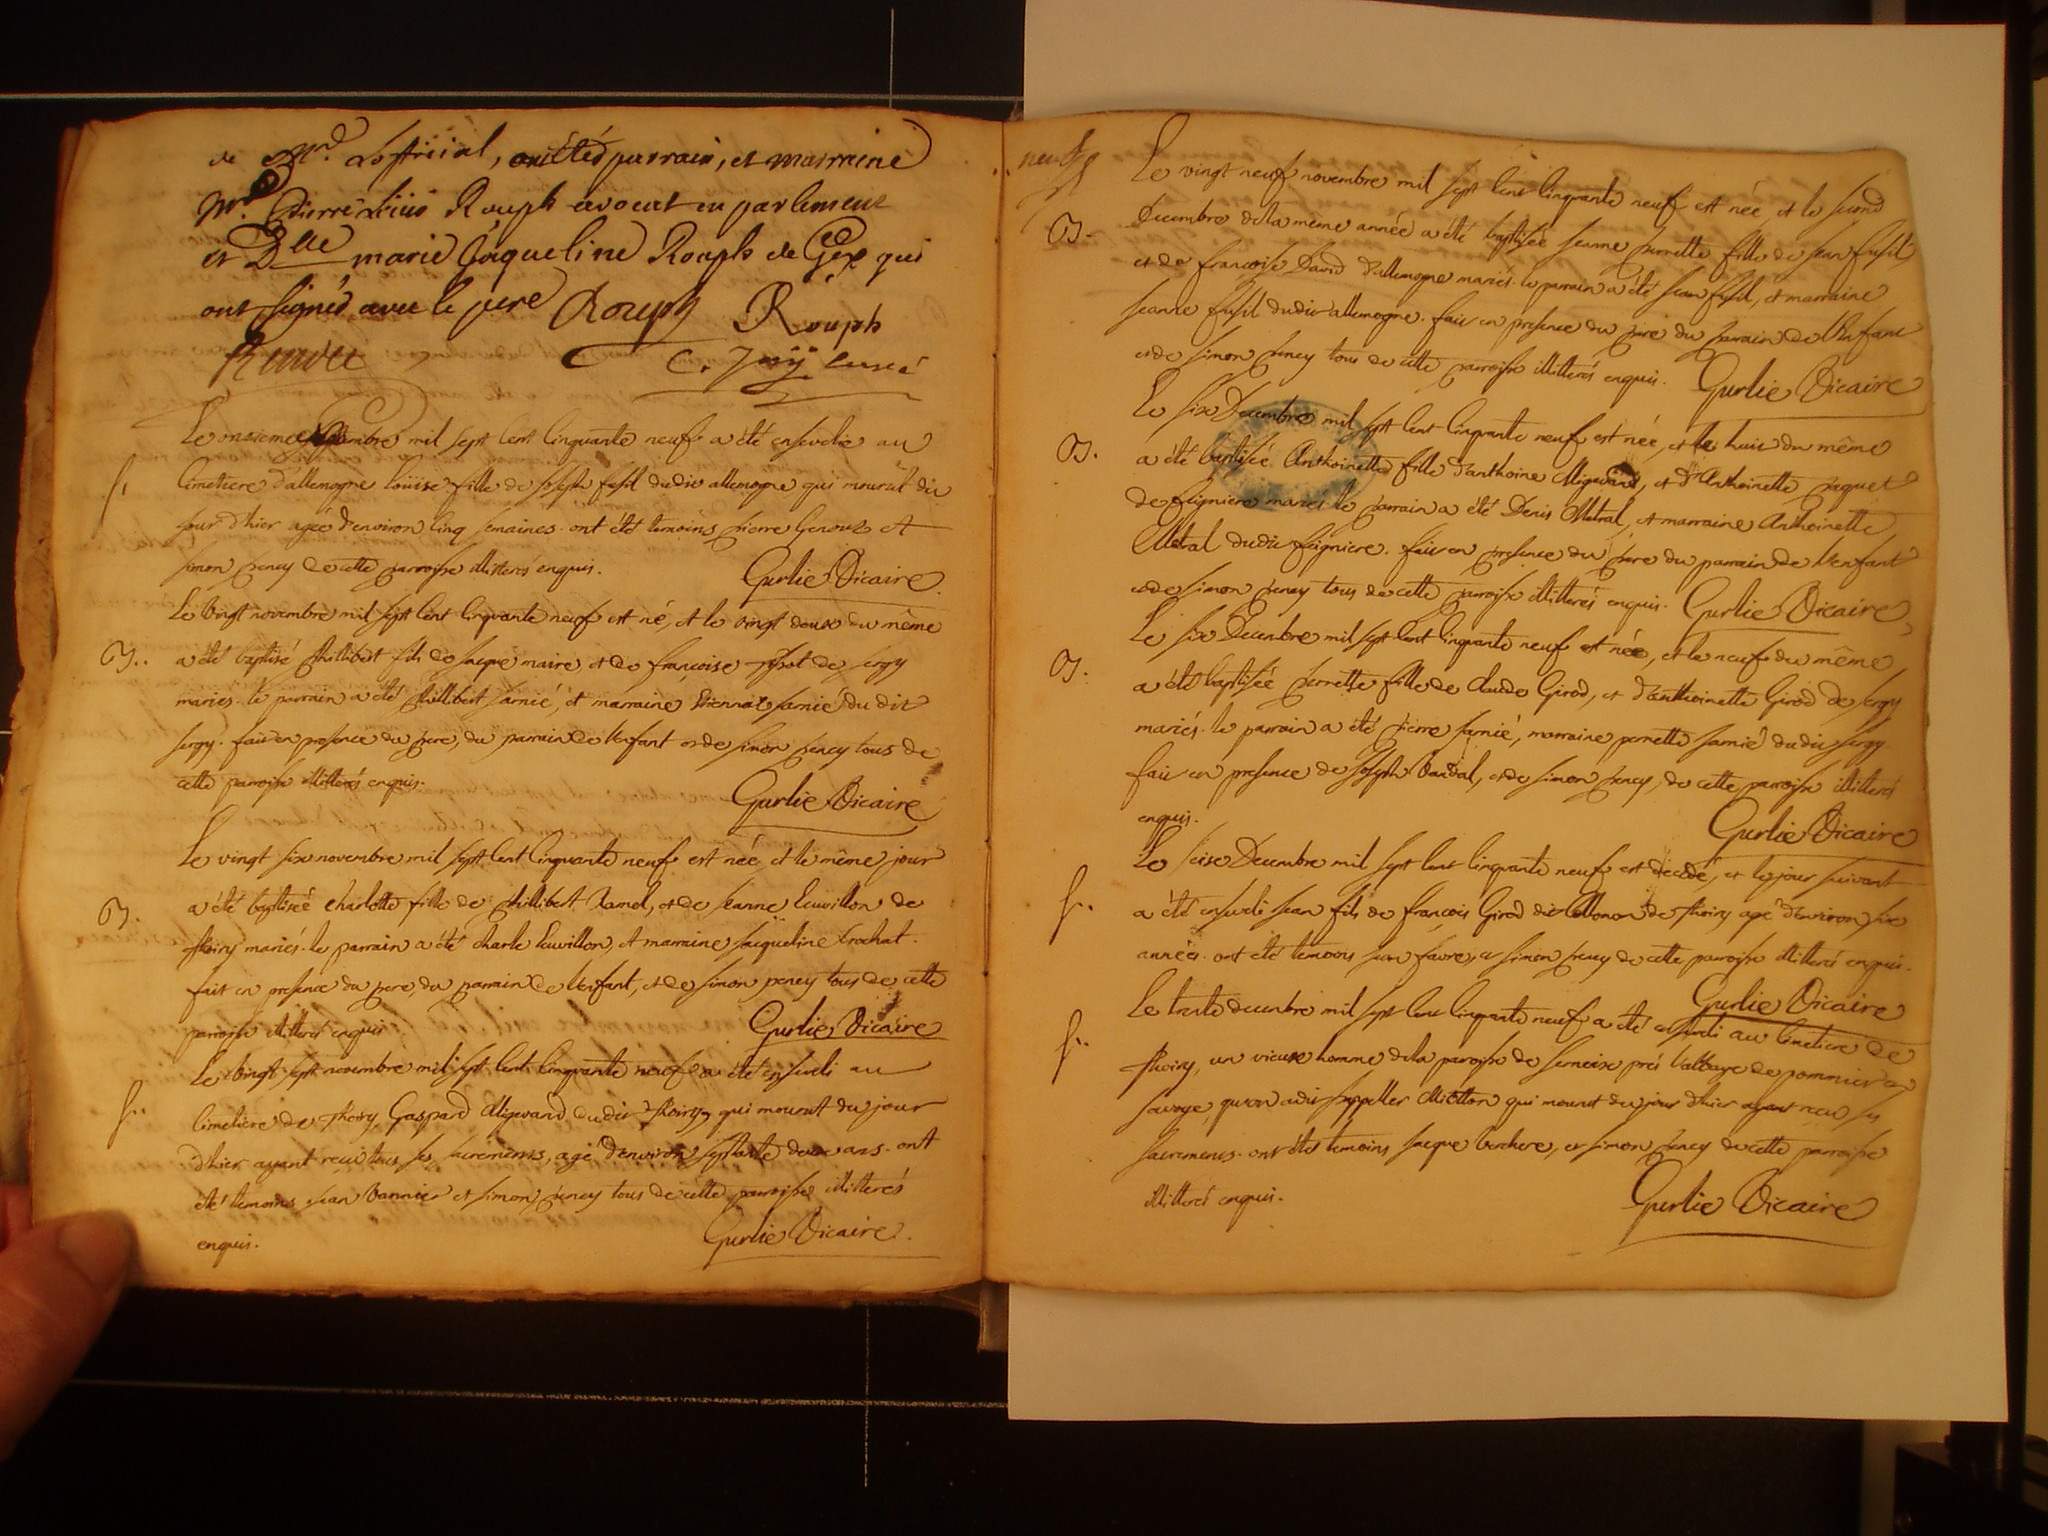 de Mr. L'official, ont étés parrain, et marraine
Mr. Pierre Louis Rouph avocat en parlement
et Dlle marie Jaqueline Rouph de Gex qui
ont signés avec le pere Rouph Rouph
C. curé
Le onzieme mil sept cent cinquante neuf a été ensevelie au
S.
cimetiere d'allemogne Loüise fille de Joseph fusil dudit allemogne qui mourut du
jour d'hier agée d'environ cinq semaines. ont été temoins pierre Genoux et
simon peney de cette parroisse illitterés enquis. Gurlie Vicaire.
Le vingt novembre mil sept cent cinquante neuf est né, et le vingt deux du même
B..
a été baptisé Phillibert fils de Jacque maire, et de françoise de sergy
mariés. le parrain a été Phillibert Jarnié, et marraine Etiennaz Jarnié du dit
sergy. fait en presence du pere, du parrain de l'enfant et de simon peney tous de
cette parroisse illitterés enquis. Gurlie Vicaire
Le vingt six novembre mil sept cent cinquante neuf est née et le même jour
B.
a été baptisée charlotte fille de Phillibert Ramel, et de Jeanne Levrillon de
thoiry mariés. le parrain a été charle Levrillon, et marraine Jacqueline Crochat.
fait en presence du pere, du parrain de l'enfant, et de simon peney tous de cette
parroisse illitterés enquis Gurlie Vicaire
Le vingt sept novembre mil sept cent cinquante neuf a été enseveli au
S..
cimetiere de thoiry Gaspard Migevand dudit thoiry qui mourut du jour
d'hier ayant reçu tous ses sacrements, agé d'environ septante deux ans. ont
été temoins jean vannier et simon peney tous de cette parroisse illitterés
enquis. Gurlie Vicaire.
Le vingt neuf novembre mil sept cent cinquante neuf est née et le second
B.
Decembre de la meme année a été baptisée Jeanne perrette fille de jean fusil,
et de françoise David d'allemogne mariés. le parrain a été jean fusil, et marraine
Jeanne fusil dudit allemogne. fait en presence du pere du parrain de l'Enfant
et de simon peney tous de cette parroisse illitterés enquis. Gurlie Vicaire
Le six Decembre mil sept cent cinquante neuf est née, et le huit du même
B.
a été baptisée Anthoinette fille d'anthoine Migevand, et d'Anthoinette paquet
de feigniere mariés le parrain a été Denis Metral, et marraine Anthoinette
Metral dudit feigniere. fait en presence du pere du parrain de l'enfant
et de simon peney tous de cette parroisse illitterés enquis. Gurlie Vicaire
Le six Decembre mil sept cent cinquante neuf est née, et le neuf du même
B.
a été baptisée perrette fille de claude Girod, et d'anthoinette Girod de sergy
mariés. le parrain a été pierre Jarnié, marraine pernette Jarnié dudit sergy.
fait en presence de Joseph, et de simon peney, de cette parroisse illitterés
enquis. Gurlie Vicaire
Le seise Decembre mil sept cent cinquante neuf est decedé, et le jour suivant
S.
a été enseveli jean fils de françois Girod dit Monon de thoiry agé d'environ six
années. ont été temoins jean favre, et simon peney de cette parroisse illitterés enquis.
Gurlie Vicaire
Le trente decembre mil sept cent cinquante neuf a été enseveli au cimetiere de
S..
thoiry, un vieux homme de la paroisse de prés l'abbaye de pommier en
savoye, qu'on a dit s'appeller qui mourut du jour d'hier ayant recu ses
sacrements. ont été temoins Jacque berchere, et simon peney de cette parroisse
illitterés enquis.
Gurlie Vicaire